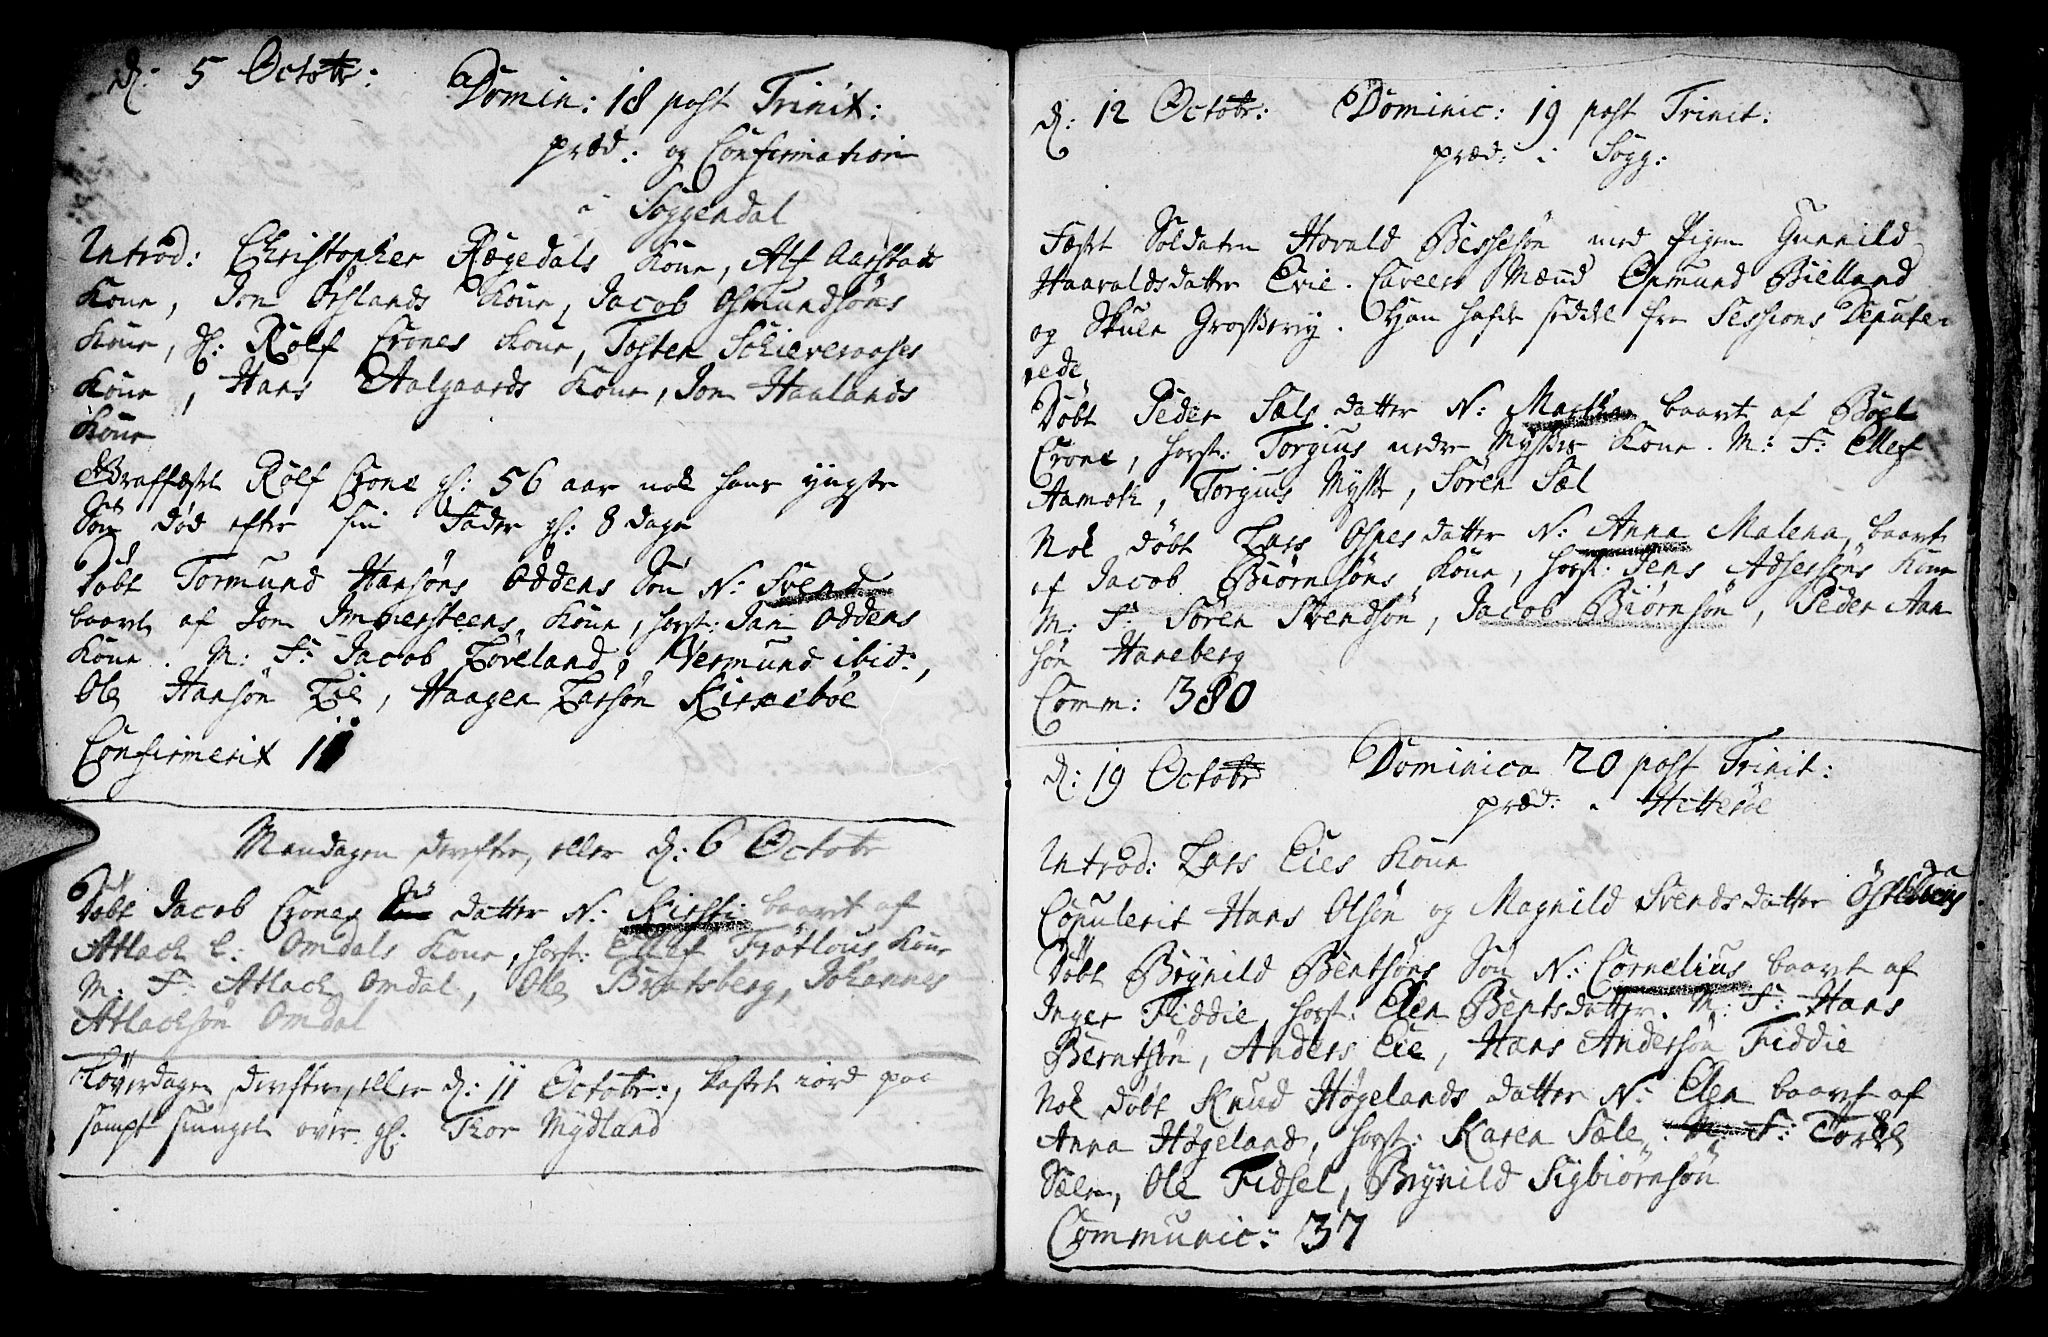 d: 5 Octobr: Domin: 18 post Trinit:
præd: og Confirmation
i Soggendal
Introd: Christopher Rægedals Kone, Alf Aarstads
Kone, Jon Ørslands Kone, Jacob Osmundsøns
Kone, Rolf Erones Kone, Tosten Schieveraases
Kone, Hans Aalgaards Kone, Jon Haalands
Kone
Graffæstet Rolf Crone gl: 56 aar nok hans yngste
Søn død efter sin Fader gl: 8 dage
Døbt Tormund Hansøns Oddens Søn N: Svend
baaret af Jon Immersteens Kone, horst: Jan Oddens
Kone. M: F: Jacob Løveland, Vermund ibid:,
Ole Hansøn Lie, Haagen Larsøn Kirkebøe
Confirmerit 11
Mandagen derefter, eller d: 6 Octobr
Døbt Jacob Crones datter N: Kirsti baaret af
Atlach E: Omdals Kone, horst: Ellef Frøtlous Kone
M: F: Atlach Omdal, Ole Bratsberg, Johannes
Atlachsøn Omdal
Løverdagen derefter, eller d: 11 Octobr:, kastet iord paa
sampt siunget over gl: Thor Mydland
d: 12 Octobr: Dominic: 19 post Trinit:
præd: i Sogg:
Fæst Soldaten Hovald Bessesøn med Pigen Gunnild
Haavaldsdatter Evie. Caveers Mænd Osmund Bielland
og Skule . Han hafde seddel fra Sessions Depute-
rede
Døbt Peder Sæls datter N: Martha baaret af Bogl
Crone, horst: Torgius nedre Mysse Kone. M: F: Ellef
Aamoth, Torgius Mysse, Søren Sæl
Nok døbt Lars Osnes datter N: Anna Malena, baaret
af Jacob Biørnsøns Kone, horst: Jens Adsersøns Kone
M: F: Søren Svendsøn, Jacob Biørnsøn, Peder Aan
søn Haneberg
Comm: 380
d: 19 Octobr Dominica 20 post Trinit:
præd: i Hitterøe
Introd: Lars Eies Kone
Copulerit Hans Olsøn og Magnild Svendsdatter
Døbt Brynild Bentsøns Søn N: Cornelius baaret af
Inger Fiddie, horst: Elen Bentsdatter. M: F: Hans
Berntsøn, Anders Eie, Hans Andersøn Fiddie
Nok døbt Knud Høgelands datter N: Elen baaret af
Anna Høgeland, horst: Karen Sæle, M: F: Torkel
Sæle, Ole Fidsel, Brynild Sigbiørnsøn
Communic: 37